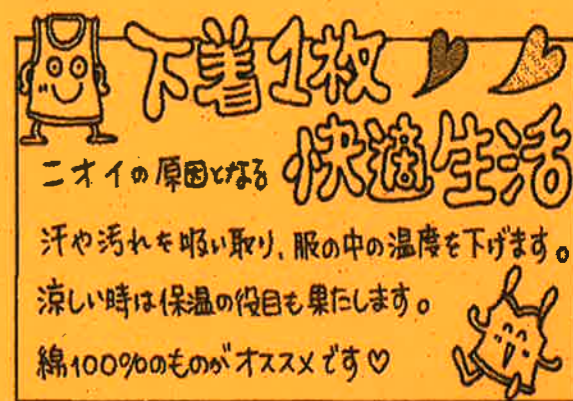 下着1枚
快適生活
ニオイの原因となる
汗や汚れを吸い取り、服の中の温度を下げます。
涼しい時は保温の役目も果たします。
綿100%のものがオススメです♡